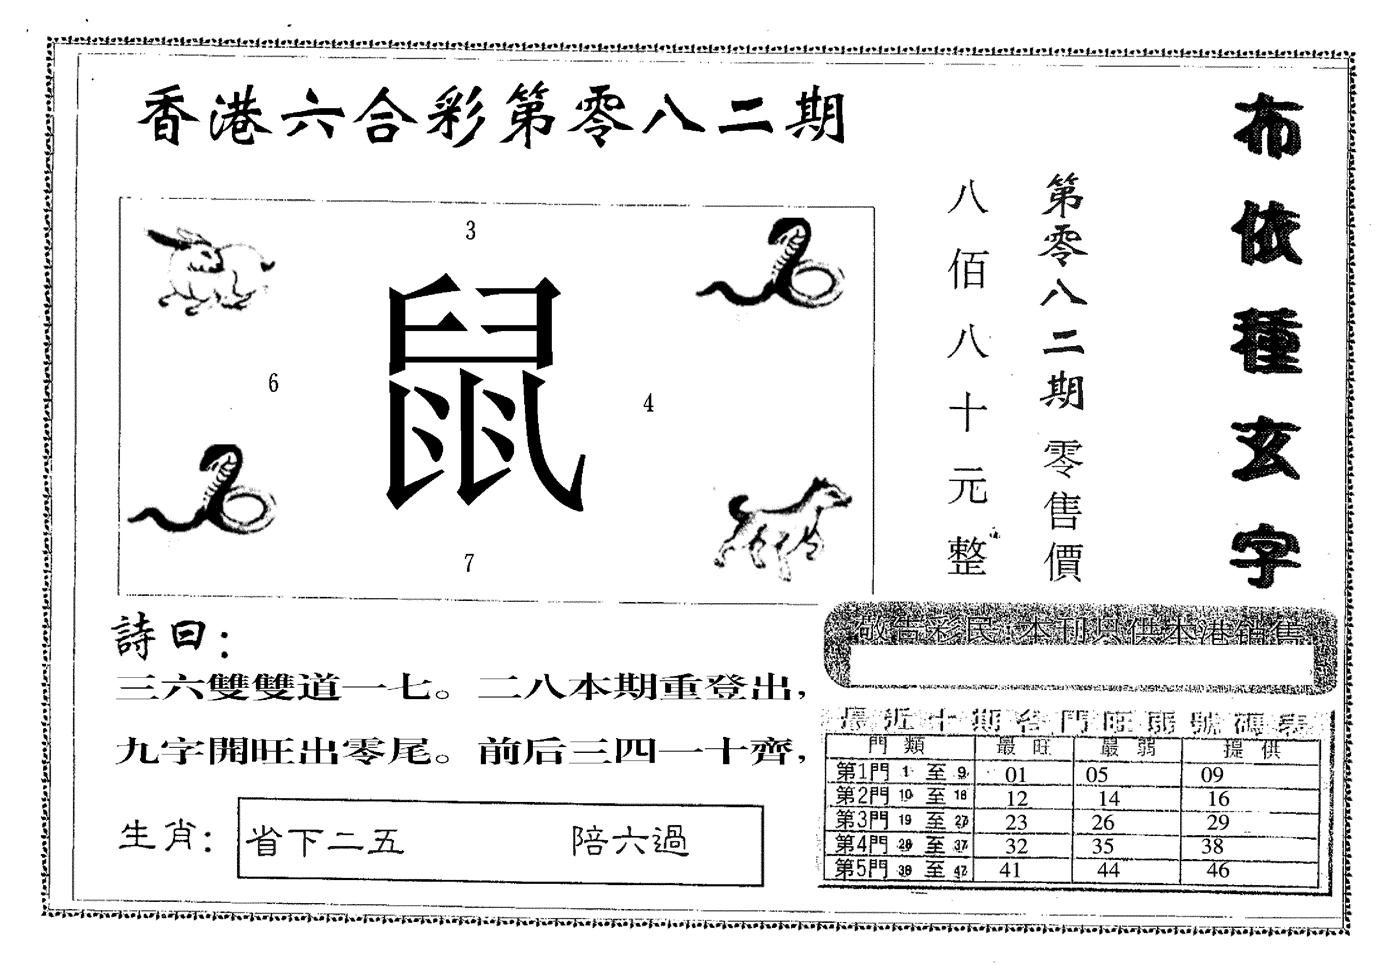 香港六合彩第零八二期
布依種玄字
第零八二期零售價
八佰八十元整
3
鼠
6
4
7
詩曰：
三六雙雙道一七。二八本期重登出，
九字開旺出零尾。前后三四一十齊，
生肖：省下二五 陪六過
敬告彩民：本刊只供本港销售
最近十期各門旺弱號碼表
門類 最旺 最弱 提供
第1門 1 至 9 01 05 09
第2門 10 至 18 12 14 16
第3門 19 至 27 23 26 29
第4門 28 至 37 32 35 38
第5門 38 至 47 41 44 46